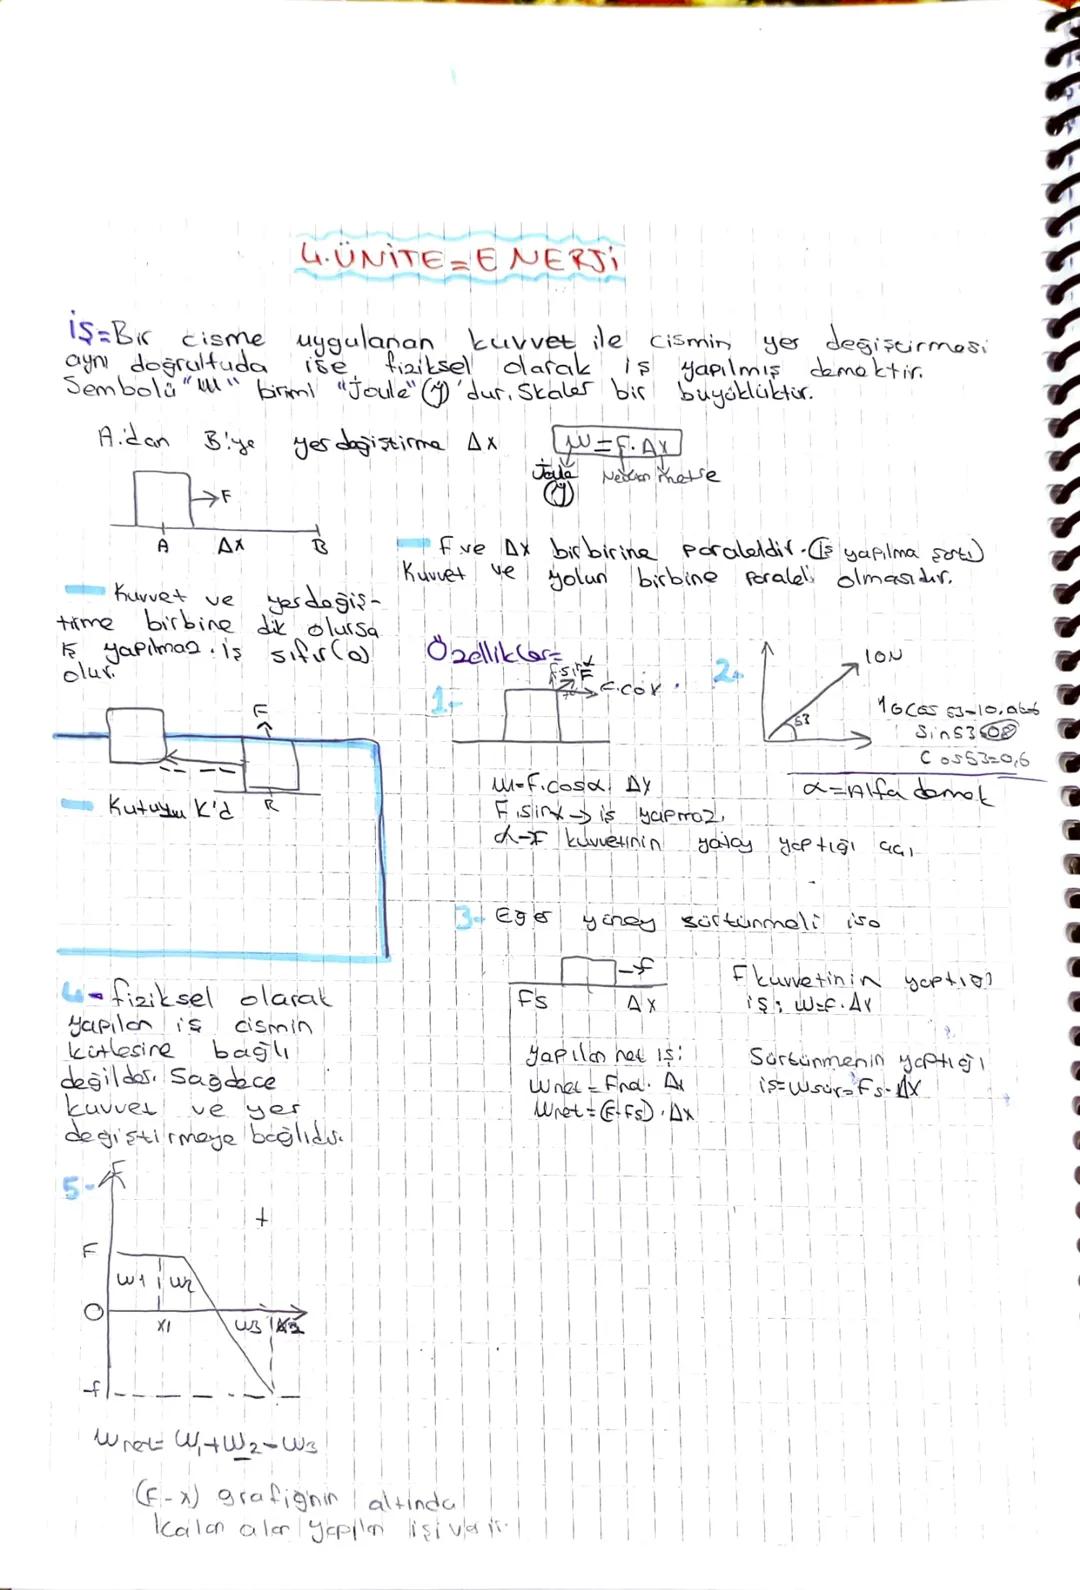 4.ÜNİTE=ENERJİ
İŞ=Bir cisme uygulanan kuvvet ile cismin yer değiştirmesi
aynı doğrultuda ise fiziksel olarak iş yapılmış demektir.
Sembolü "W" birimi "Joule" (J)'dur. Skaler bir büyüklüktür.
A'dan B'ye yer değiştirme Δx
W=F.Δx
Joule (J) Newton metre
F
A Δx B
F ve Δx birbirine paraleldir.(İş yapılma şartı)
Kuvvet ve yolun birbine paraleli olmasıdır.
Kuvvet ve yerdeğiş-
tirme birbine dik olursa
iş yapılmaz. iş sıfır(0)
olur.
F
R
Kutuyu K'd
Özellikler=
1-
F.sin
W=F.cosα Δx
F.sinα→iş yapmaz.
kuvvetinin yatay yaptığı açı
2-
10N
53
Sin53
Cos53=0,6
α=Alfa demek
3- Eğer yüzey sürtünmeli ise
f
Fs Δx
F kuvvetinin yaptığı
iş: W=F.Δx
yapılan net iş:
Wnet=Fnet.Δx
Wnet=(F-fs).Δx
Sürtünmenin yaptığı
iş=Wsür=Fs.Δx
4-fiziksel olarak
yapılan iş cismin
kütlesine bağlı
değildir. Sadece
kuvvet ve yer
değiştirmeye bağlıdır.
5-
F
+
F
W1 W2
O
X1 W3 X2
-f
Wnet=W1+W2-W3
(F-x) grafiğinin altında
kalan alan yapılan işi verir.